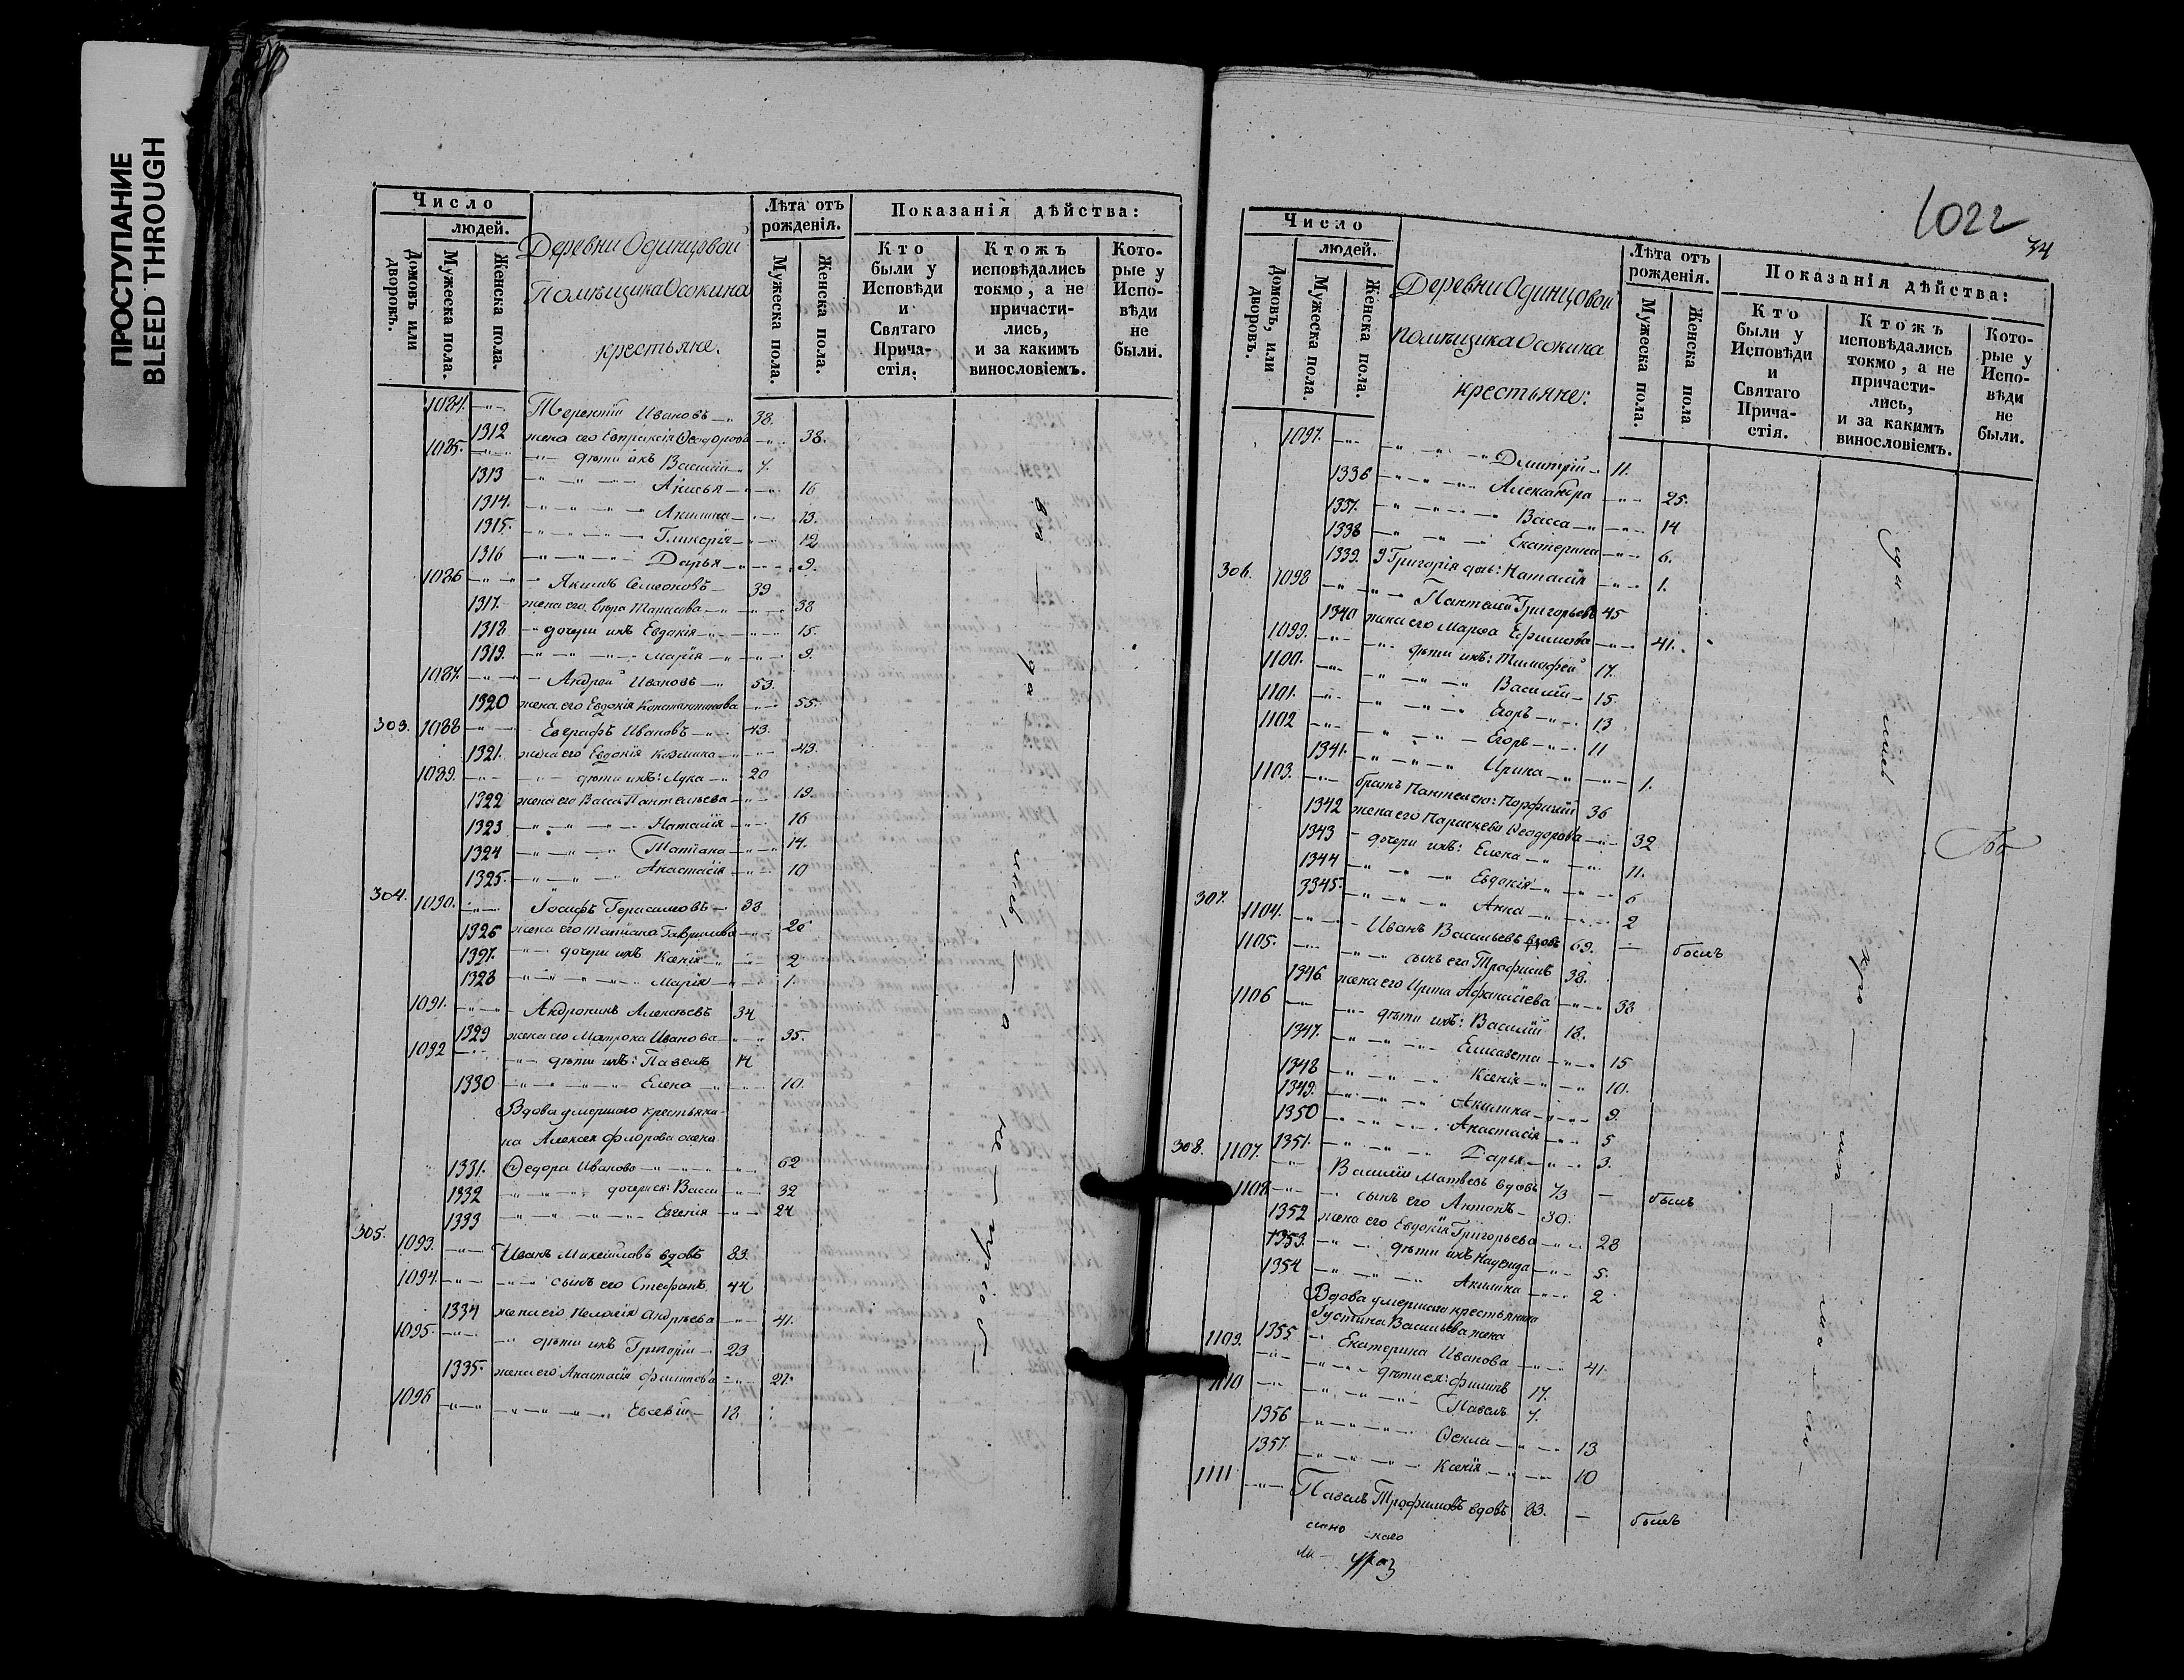 ПРОСТУПАНИЕ
BLEED THROUGH
Число
людей.
Домовъ или дворовъ.
Мужеска пола.
Женска пола.
Деревни Одинцовой
Помѣщика Осокина
крестьяне.
Лѣта отъ рожденія.
Мужеска пола.
Женска пола.
Показанія дѣйства:
Кто были у Исповѣди и Святаго Прича-стія.
Ктожъ исповѣдались токмо, а не причасти-лись, и за какимъ винословіемъ.
Кото-рые у Испо-вѣди не были.
1084. Терентій Ивановъ 38.
1312 жена его Евпраксія Ѳеодорова 38.
1085. дѣти ихъ Василій 7.
1313 Анисья 16
1314. Акилина 13.
1315. Гликерія 12
1316 Дарья 9.
1086 Якимъ Семеновъ 39
1317. жена его Тарасова 38
1318 дочери ихъ Евдокія 15.
1319. Марія 9.
1087. Андрей Ивановъ 53.
1320 жена его Евдокія Константинова 55.
303. 1088 Евграфъ Ивановъ 43.
1321. жена его Евдокія Козмина 43.
1089. дѣти ихъ: Лука 20
1322 жена его Васса Пантелеева 19.
1323 Наталія 16
1324 Татіана 14.
1325. Анастасія 10
304. 1090. Іосифъ Герасимовъ 33
1326 жена его Татіана Гаврилова 26
1327. дочери ихъ Ксенія 2
1328 Марія 1.
1091. Андроникъ Алексѣевъ 34
1329 жена его Матрона Иванова 35.
1092 дѣти ихъ: Павелъ 14
1330 Елена 10.
Вдова умершаго крестьяни-
на Алексея Флорова жена
1331. Ѳедора Иванова 62
1332 дочери ея: Васса 32
1333 Евгенія 24
305. 1093. Иванъ Михайловъ вдовъ 83.
1094. сынъ его Стефанъ 44
1334 жена его Пелагія Андрѣева 41.
1095. дѣти ихъ Григорій 23
1335. жена его Анастасія Филипова 21.
1096 Евсевій 18
1022
34
Число
людей.
Домовъ, или дворовъ.
Мужеска пола.
Женска пола.
Деревни Одинцовой
помѣщика Осокина
крестьяне:
Лѣта отъ рожденія.
Мужеска пола.
Женска пола
Показанія дѣйства:
Кто были у Исповѣди и Святаго Прича-стія.
Ктожъ исповѣдались токмо, а не причасти-лись, и за какимъ винословіемъ.
Кото-рые у Испо-вѣди не были.
1097. Димитрій 11.
1336 Александра 25.
1337. Васса 14
1338 Екатерина 6.
1339. У Григорія дочь: Наталія 1.
306. 1098 Пантелей Григорьевъ 45
1340 жена его Марѳа Ефимова 41.
1099. дѣти ихъ: Тимофей 17.
1100. Василій 15
1101. Егоръ 13
1102 Егоръ 11
1341. Ирина 1.
1103. братъ Пантелею: Порфирій 36
1342 жена его Параскева Ѳеодорова 32
1343 дочери ихъ: Елена 11.
1344 Евдокія 6
3345. Анна 2
307. 1104. Иванъ Васильевъ вдовъ 69. былъ
1105. сынъ его Трофимъ 38.
1346 жена его Ирина Афанасіева 33
1106 дѣти ихъ: Василій 18.
1347. Елисавета 15
1348 Ксенія 10.
1349. Акилина 9.
1350 Анастасія 5
1351. Дарья 3.
308. 1107. Василій Матвѣевъ вдовъ 73 былъ
1108. сынъ его Антонъ 30.
1352 жена его Евдокія Григорьева 28
1353. дѣти ихъ Надежда 5.
1354 Акилина 2
Вдова умершаго крестьянина
Густина Васильева жена
1355 Екатерина Иванова 41.
1109. дѣти ея: Филипъ 17.
1110 Павелъ 7.
1356 Ѳекла 13
1357. Ксенія 10
1111. Павелъ Трофимовъ вдовъ 83. былъ